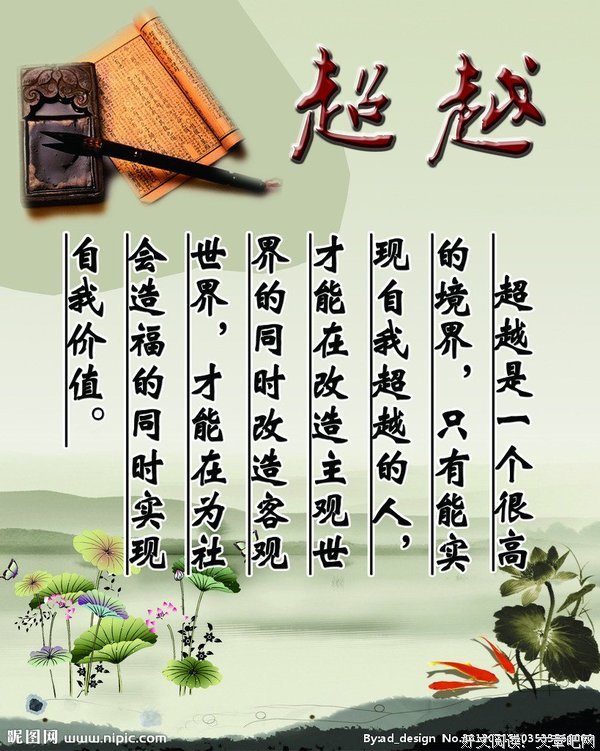 超越
超越是一个很高
的境界，只有能实
现自我超越的人，
才能在改造主观世
界的同时改造客观
世界，才能在为社
会造福的同时实现
自我价值。
昵图网 www.nipic.com
By:ad_design